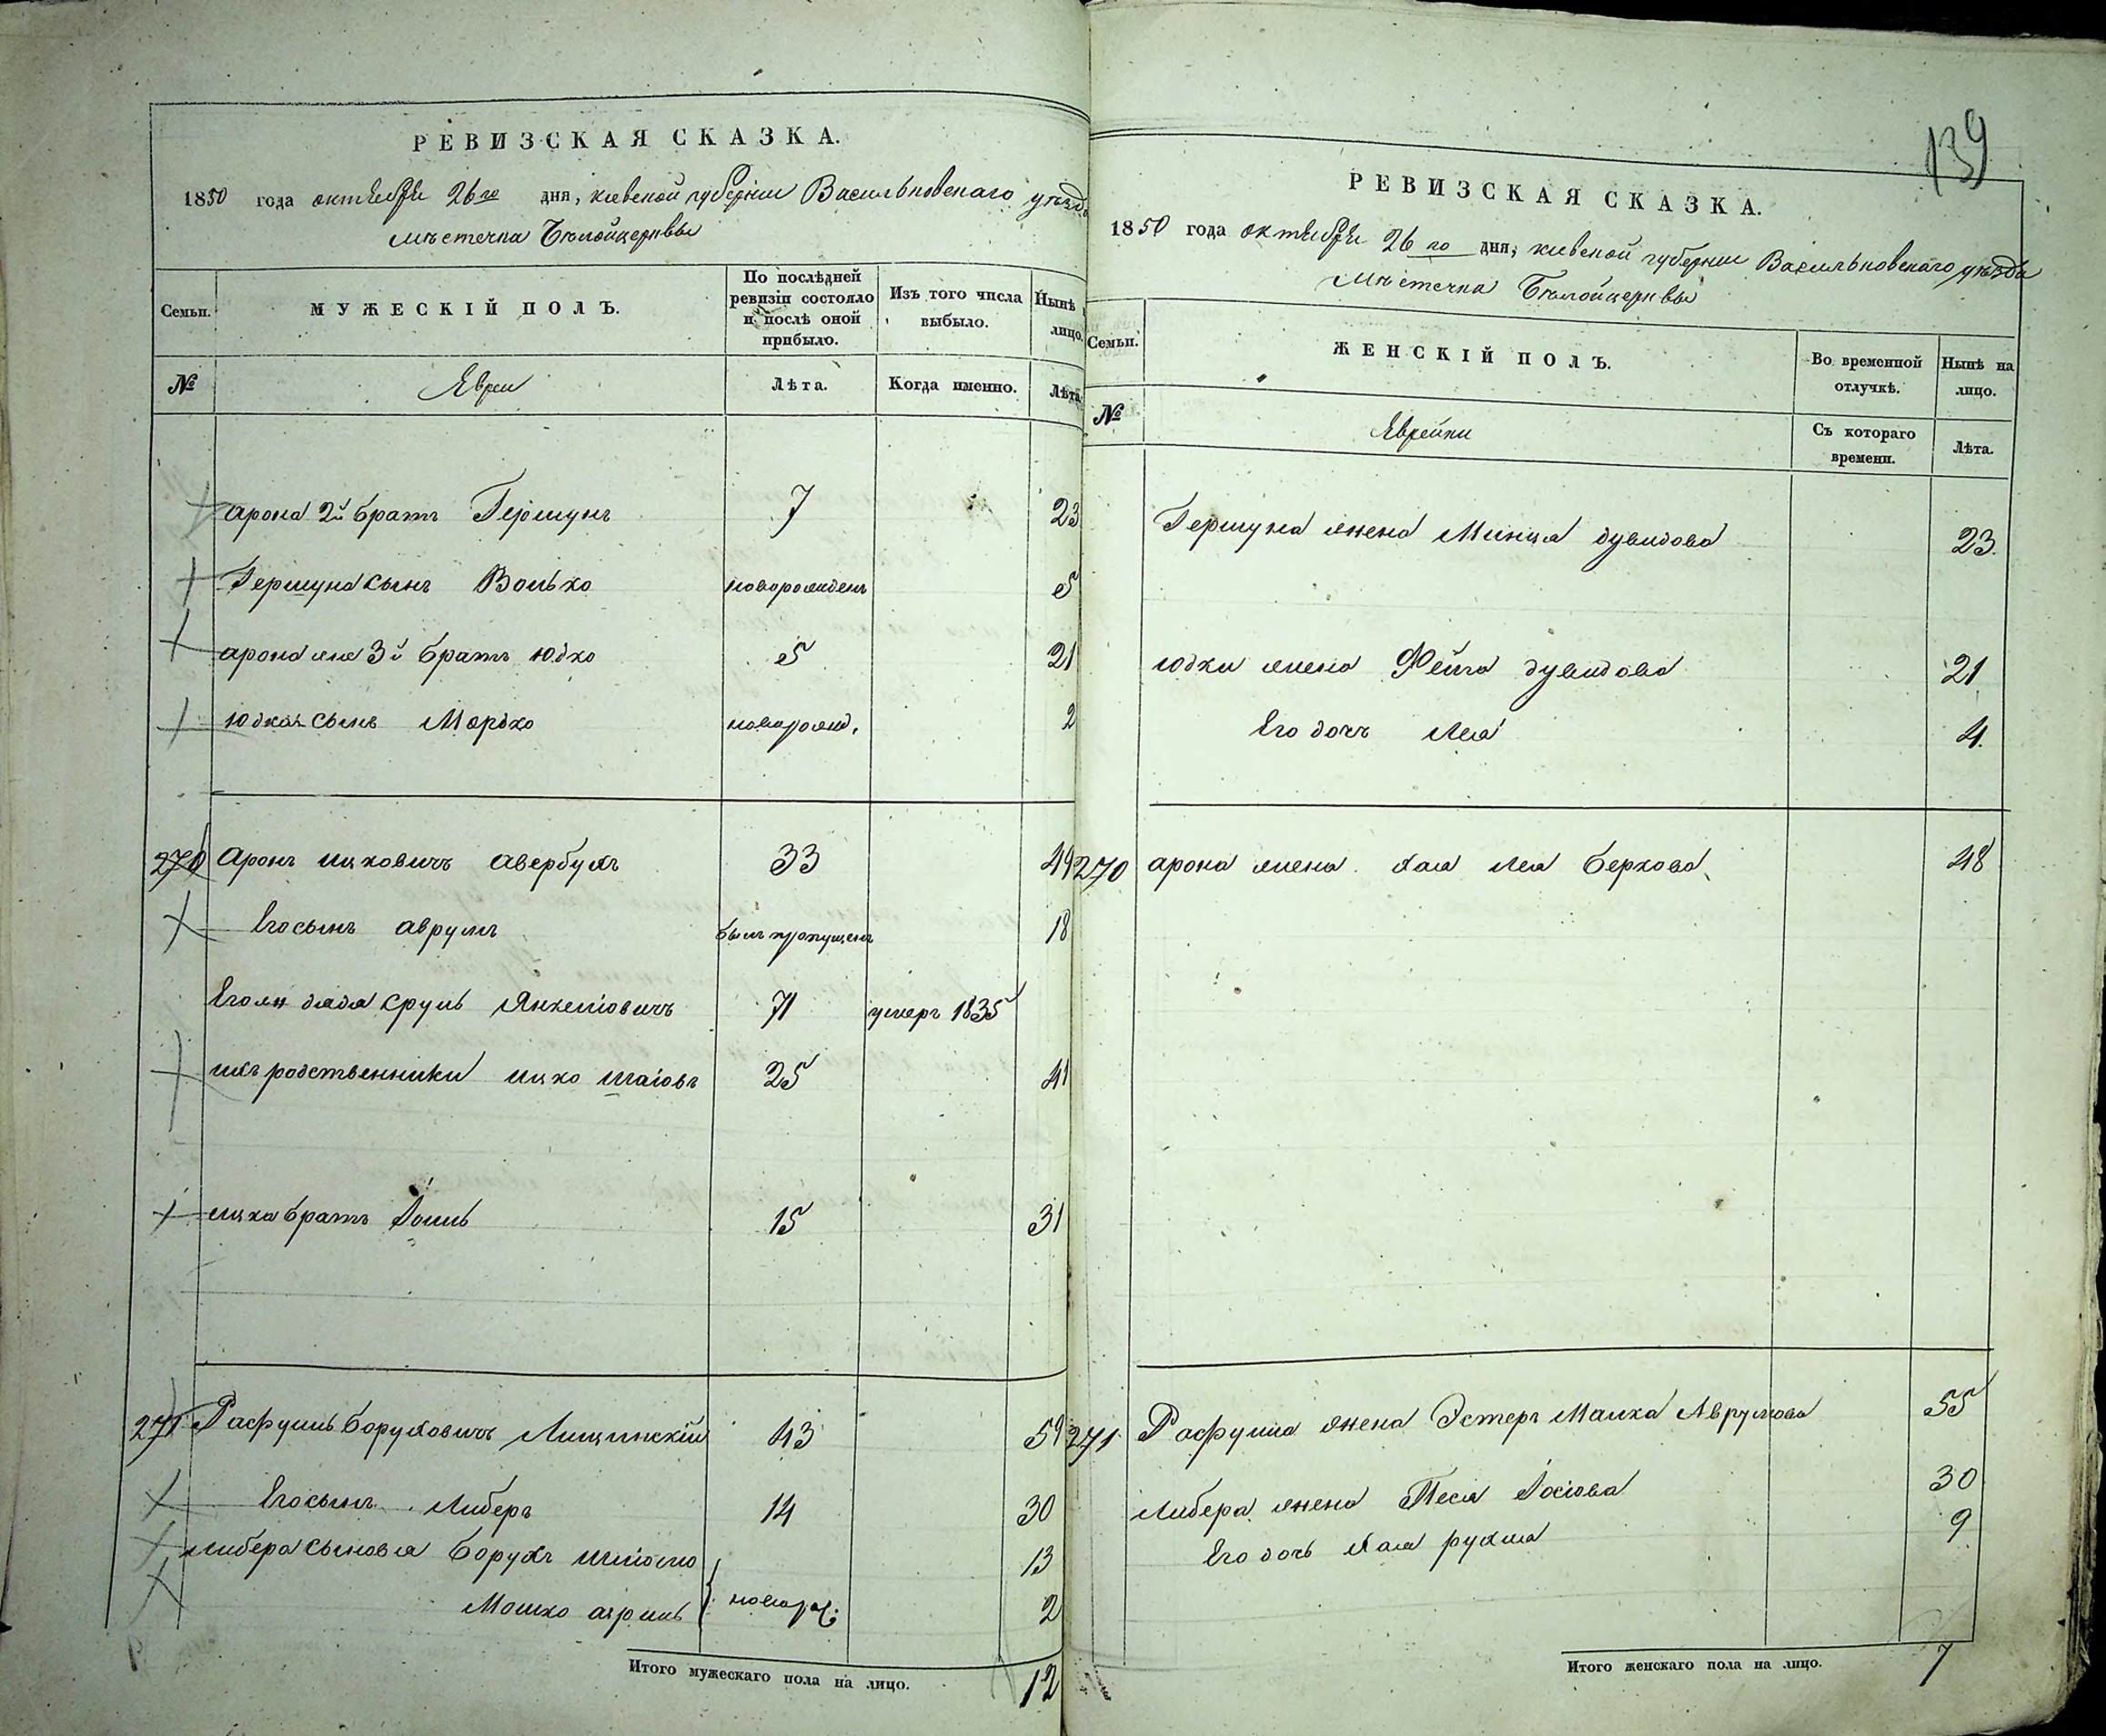 РЕВИЗСКАЯ СКАЗКА.
1850 года октября 26го дня, киевской губернии Васильковскаго уезда
местечка Белойцерквы
Семьи.
МУЖЕСКІЙ ПОЛЪ.
По послѣдней ревизіи состояло и послѣ оной прибыло.
Изъ того числа выбыло.
Нынѣ лицо.
№
Евреи
Лѣта.
Когда именно.
Лѣта
арона 2й братъ Гершунъ 7 23
Гершуна сынъ Волько новорожденъ 5
арона же 3й братъ юдко 5 21
юдка сынъ Мордко новорожд. 2
270 Аронъ ицковичъ авербухъ 33 49
Его сынъ аврумъ былъ пропущенъ 18
Его же дядя сруль Янкелiовичъ 71 умеръ 1835
ихъ родственники ицко шаiовъ 25 41
ицка братъ 15 31
271 Расфулъ боруховичъ Лищинскій 43 59
Его сынъ Либеръ 14 30
либера сыновья борухъ шлiомо 13
Мошко новорож: 2
Итого мужескаго пола на лицо. 12
139
РЕВИЗСКАЯ СКАЗКА.
1850 года октября 26го дня, киевской губернии Васильковскаго уезда
местечка Белойцерквы
Семьи.
ЖЕНСКІЙ ПОЛЪ.
Во временной отлучкѣ.
Нынѣ на лицо.
№
Еврейки
Съ котораго времени.
Лѣта.
Гершуна жена Минця дувидова 23.
юдки жена Фейга дувидова 21
Его дочь Лея 4.
270 арона жена хая лея беркова 48
271 жена Эстеръ Малка Аврумова 55
Либера жена Песя 30
Его дочь хая рухля 9
Итого женскаго пола на лицо. 7